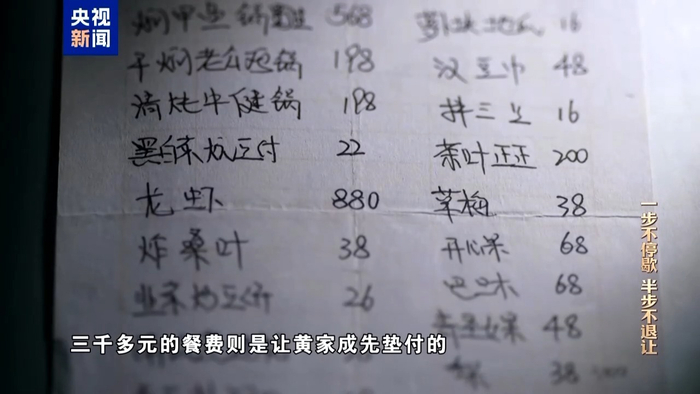 央视
新闻
568
干焖老公鸡锅 198
清炖牛健锅 198
黑白菜炖豆付 22
龙虾 880
炸桑叶 38
26
16
汉豆巾 48
拌三 16
茶叶正正 200
草梅 38
开心果 68
68
48
38
一步不停歇 半步不退让
三千多元的餐费则是让黄家成先垫付的